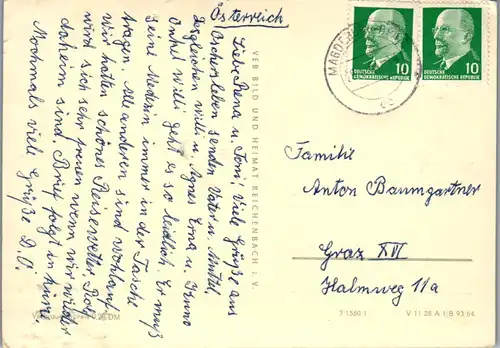 Österreich
Liebe Rena u. Toni! Viele Grüße aus
Oschersleben senden Vater u. Mutter
desgleichen Willi u. Agnes Erna u. Benno
Onkel Willi geht es so leidlich. Er muß
seine Medizin immer in der Tasche
tragen. Alle anderen sind wohlauf.
Wir hatten schönes Reisewetter. Rolf
wird sich sehr freuen wenn wir wieder
daheim sind. Brief folgt in Kürze.
Nochmals viele Grüße D.O.
VEB BILD UND HEIMAT REICHENBACH i. V.
MAGDE
10
DEUTSCHE
DEMOKRATISCHE REPUBLIK
10
DEUTSCHE
DEMOKRATISCHE REPUBLIK
Familie
Anton Baumgartner
Graz XVI
Halmweg 11a
V 11 28 A 1 B 93/64